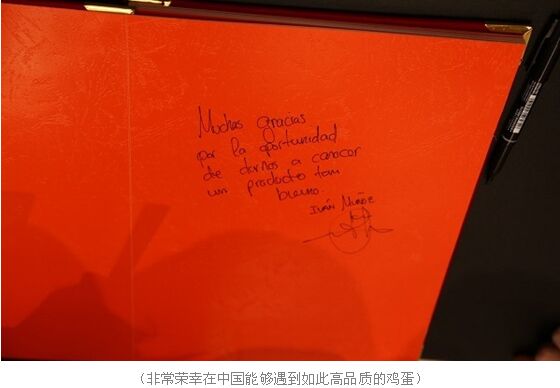 Muchas gracias
por la oportunidad
de darnos a conocer
un producto tan
bueno.
IVÁN MUÑOZ
(非常荣幸在中国能够遇到如此高品质的鸡蛋)